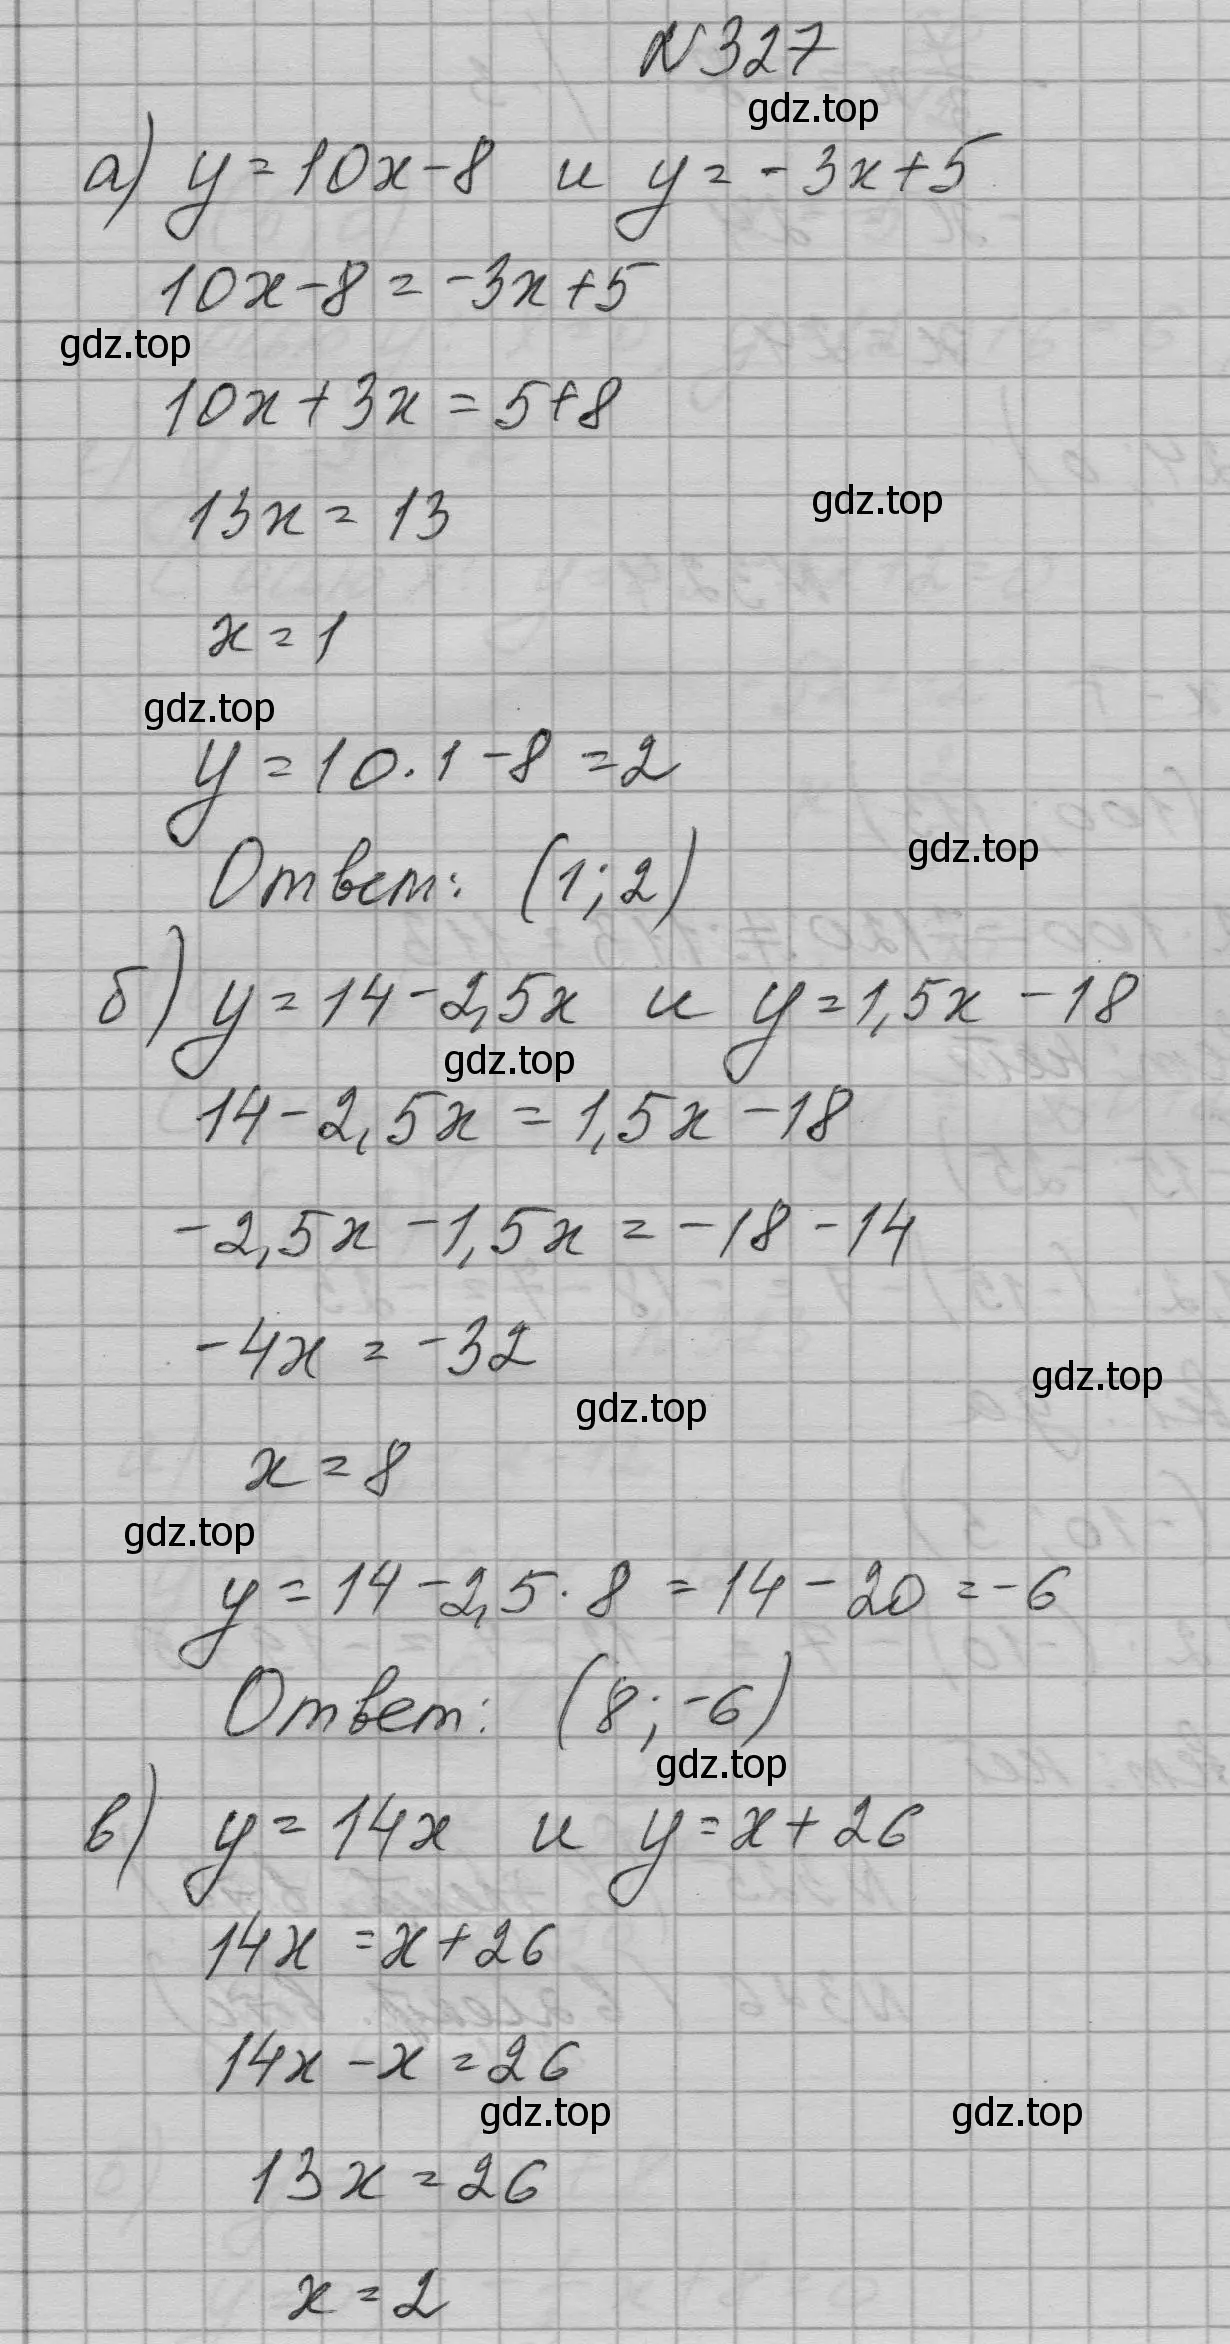 №327
gdz.top
а) y=10x-8 и y=-3x+5
10x-8=-3x+5
gdz.top
10x+3x=5+8
13x=13
gdz.top
x=1
gdz.top
y=10·1-8=2
gdz.top
Ответ: (1;2)
б) y=14-2,5x и y=1,5x-18
gdz.top
14-2,5x=1,5x-18
-2,5x-1,5x=-18-14
-4x=-32
gdz.top
gdz.top
x=8
gdz.top
y=14-2,5·8=14-20=-6
Ответ: (8;-6)
gdz.top
в) y=14x и y=x+26
14x=x+26
14x-x=26
gdz.top
gdz.top
13x=26
x=2